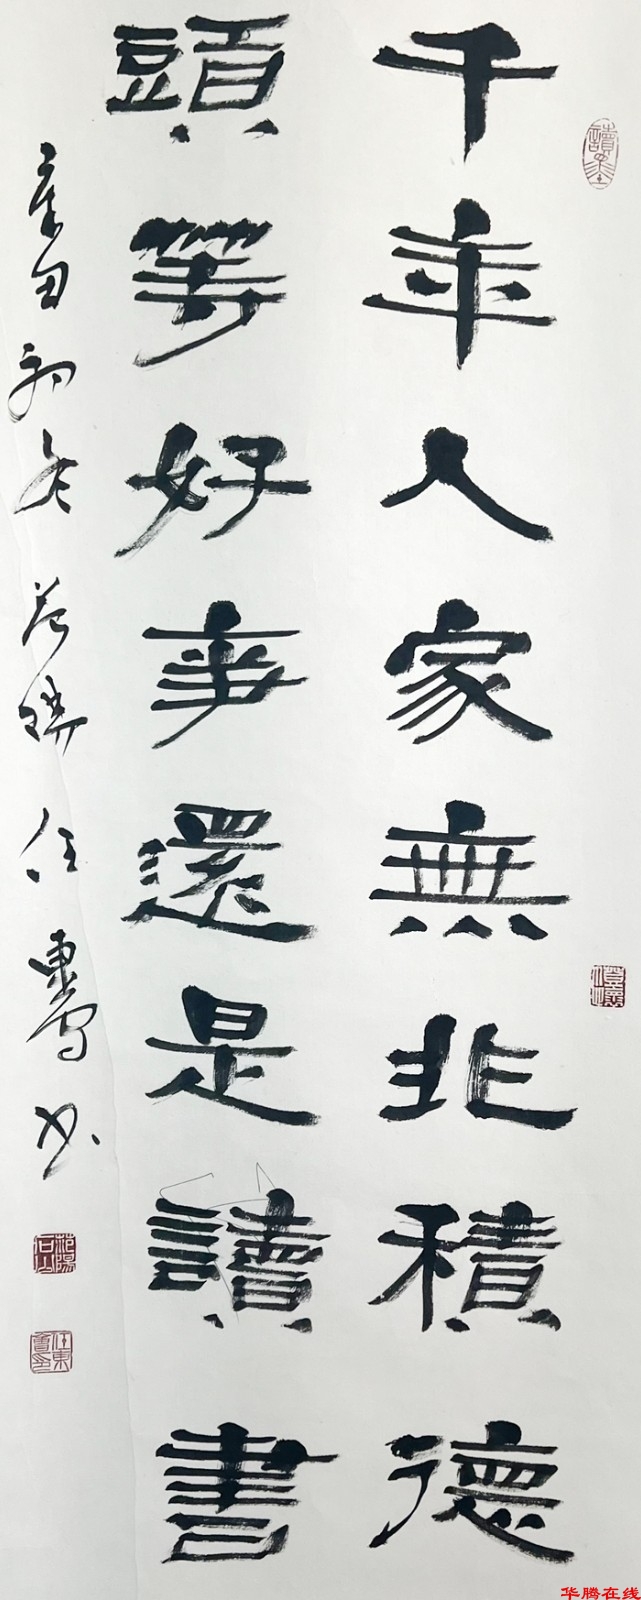 千年人家無非積德
頭等好事還是讀書
辛丑初冬 任東 书
华腾在线